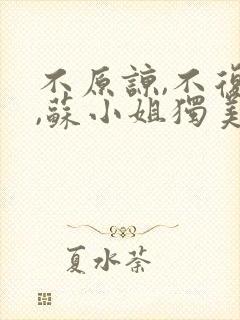 不原諒,不復
,蘇小姐獨美
夏水荼